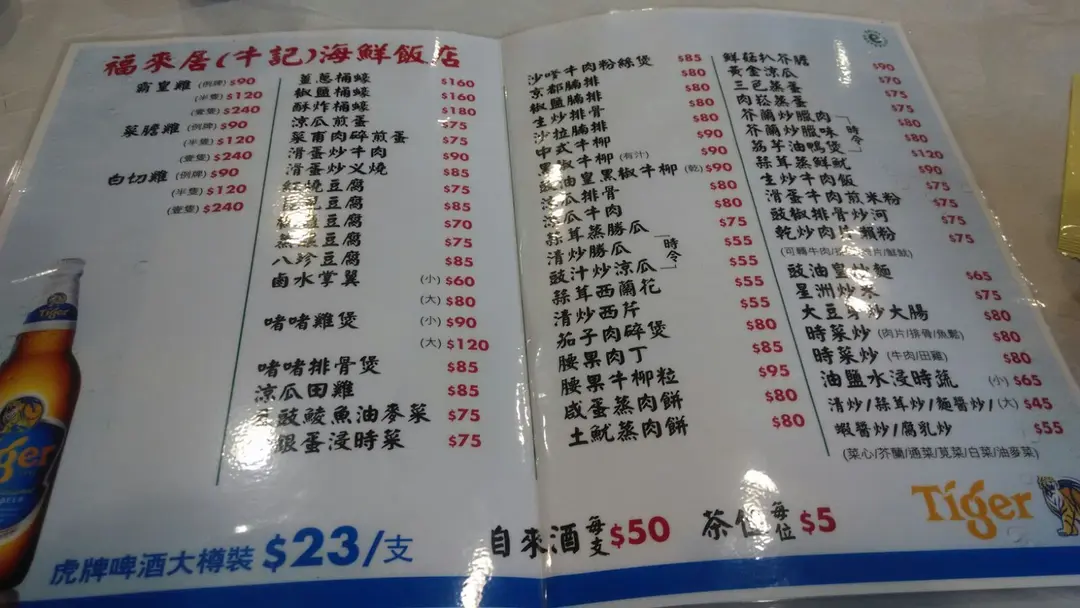 福來居(牛記)海鮮飯店
霸皇雞 (例牌) $90
(半隻) $120
(壹隻) $240
菜膽雞 (例牌) $90
(半隻) $120
(壹隻) $240
白切雞 (例牌) $90
(半隻) $120
(壹隻) $240
薑蔥桶蠔 $160
椒鹽桶蠔 $160
酥炸桶蠔 $180
涼瓜煎蛋 $75
菜甫肉碎煎蛋 $75
滑蛋炒牛肉 $90
滑蛋炒义燒 $85
紅燒豆腐 $75
豆腐 $85
椒鹽豆腐 $70
豆腐 $75
八珍豆腐 $85
鹵水掌翼 (小) $60
(大) $80
啫啫雞煲 (小) $90
(大) $120
啫啫排骨煲 $85
涼瓜田雞 $85
豆豉鯪魚油麥菜 $75
銀蛋浸時菜 $75
沙嗲牛肉粉絲煲 $85
京都腩排 $80
椒鹽腩排 $80
生炒排骨 $90
沙拉腩排 $90
中式牛柳
黑椒牛柳 (有汁)
豉油皇黑椒牛柳 (乾) $90
涼瓜排骨 $80
涼瓜牛肉 $80
蒜茸蒸勝瓜 $75
清炒勝瓜 「時令」 $55
豉汁炒涼瓜 $55
蒜茸西蘭花 $55
清炒西芹 $55
茄子肉碎煲 $80
腰果肉丁 $85
腰果牛柳粒 $95
咸蛋蒸肉餅 $80
土魷蒸肉餅 $80
鮮菇扒芥膽 $90
黃金涼瓜 $70
三色蒸蛋 $75
肉崧蒸蛋 $75
芥蘭炒臘肉 $80
芥蘭炒臘味 「時令」 $80
荔芋油鴨煲 $120
蒜茸蒸鮮魷 $90
生炒牛肉飯 $75
滑蛋牛肉煎米粉 $75
豉椒排骨炒河 $75
乾炒肉片瀨粉 $75
豉油皇炒麵 $65
星洲炒米 $75
大豆芽炒大腸 $80
時菜炒 (肉片/排骨/魚鬆) $80
時菜炒 (牛肉/田雞) $80
油鹽水浸時蔬 (小) $65
清炒/蒜茸炒/麵醬炒/ (大) $45
蝦醬炒/腐乳炒 $55
(菜心/芥蘭/通菜/莧菜/白菜/油麥菜)
虎牌啤酒大樽裝 $23/支
自來酒 每支 $50
茶位 每位 $5
Tiger
Tiger